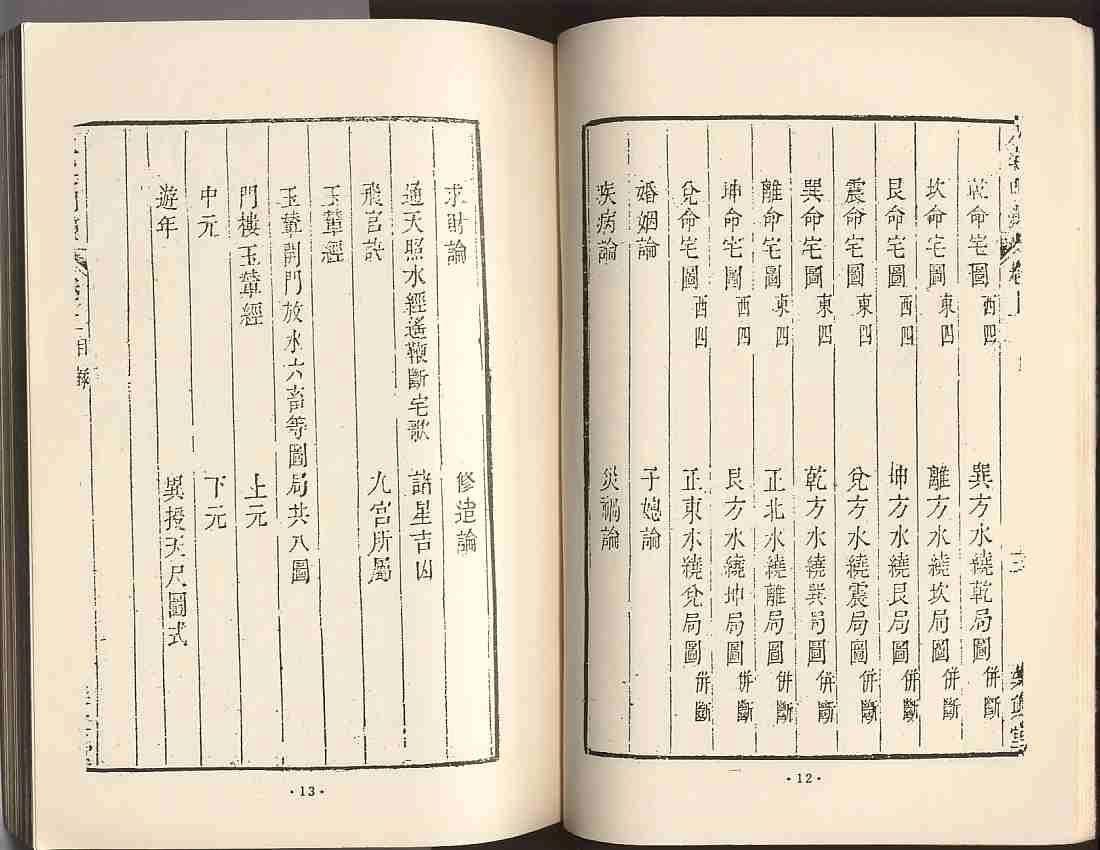 乾命宅圖 西四 巽方水繞乾局圖 併斷
坎命宅圖 東四 離方水繞坎局圖 併斷
艮命宅圖 西四 坤方水繞艮局圖 併斷
震命宅圖 東四 兌方水繞震局圖 併斷
巽命宅圖 東四 乾方水繞巽局圖 併斷
離命宅圖 東四 正北水繞離局圖 併斷
坤命宅圖 西四 艮方水繞坤局圖 併斷
兌命宅圖 西四 正東水繞兌局圖 併斷
婚姻論 子媳論
疾病論 災禍論
·12·
求財論 修造論
通天照水經遙鞭斷宅歌 諸星吉凶
飛宮訣 九宮所屬
玉輦經
玉輦開門放水六畜等圖局共八圖
門樓玉輦經 上元
中元 下元
遊年 異授天尺圖式
·13·